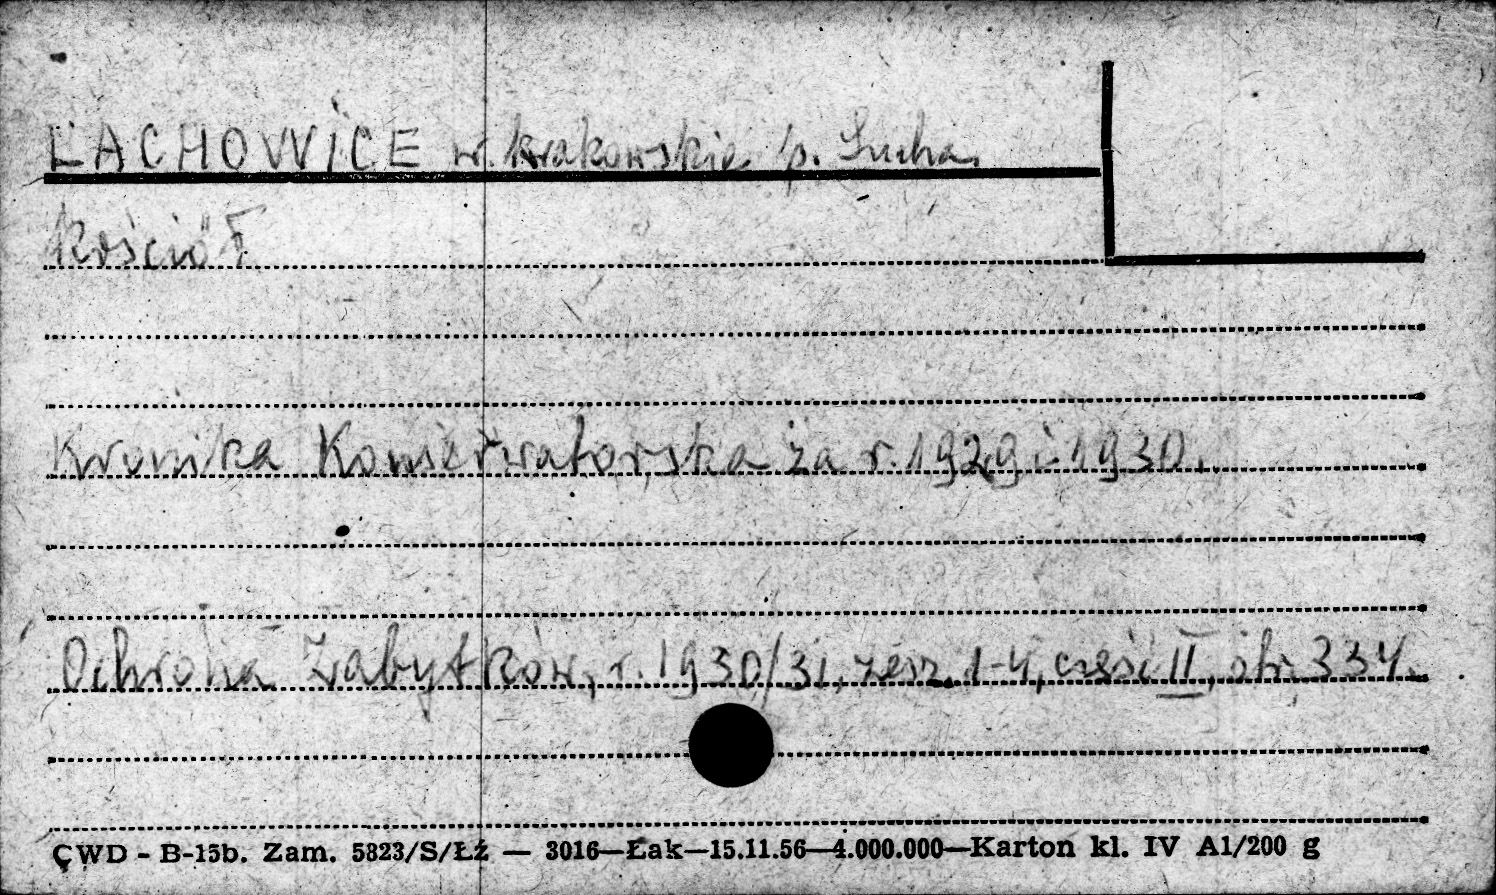 ŁACHOWICE w. krakowskie p. Sucha.
Kościół
Kronika Konserwatorska za r. 1929 i 1930.
Ochrona Zabytków, r. 1930/31, zesz. 1-4, część II, str. 334.
CWD - B-15b. Zam. 5823/S/ŁŻ — 3016—Łak—15.11.56—4.000.000—Karton kl. IV A1/200 g